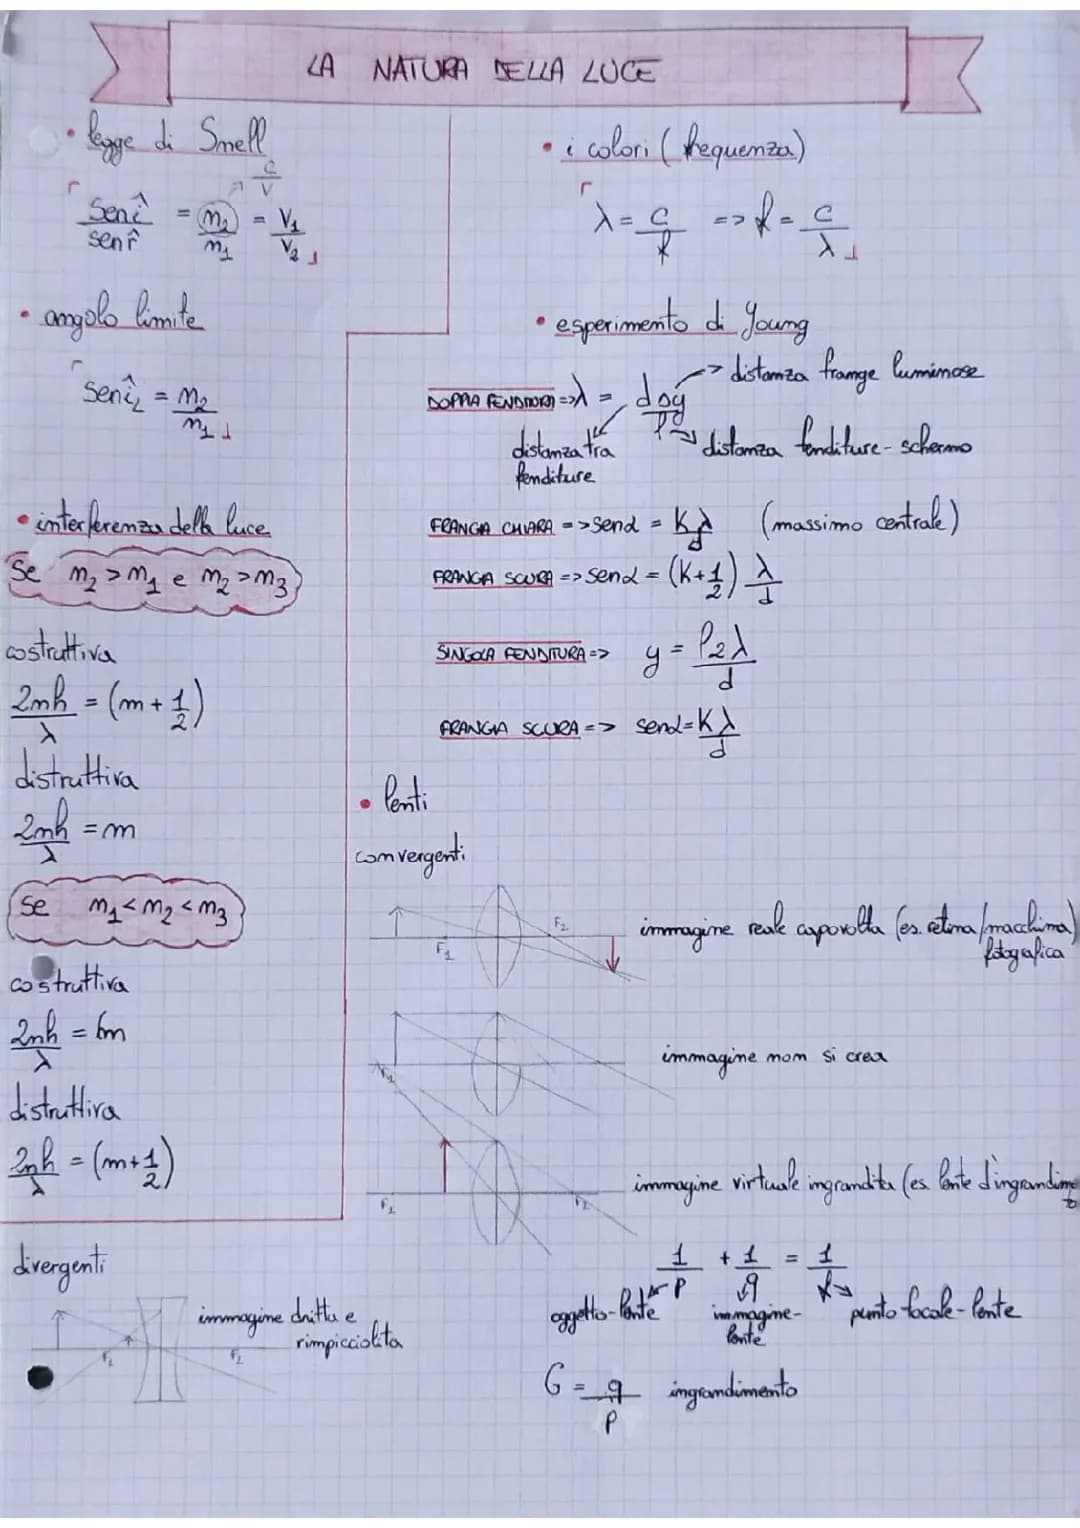 LA NATURA DELLA LUCE
• legge di Snell
sen î / sen r̂ = n₂ / n₁ = V₁ / V₂
c / V
• angolo limite
sen î_L = n₂ / n₁
• interferenza della luce
Se n₂ > n₁ e n₂ > n₃
costruttiva
2nh / λ = (m + 1/2)
distruttiva
2nh / λ = m
Se n₁ < n₂ < n₃
costruttiva
2nh / λ = m
distruttiva
2nh / λ = (m + 1/2)
• i colori (frequenza)
λ = c / f => f = c / λ
• esperimento di Young
DOPPIA FENDITURA => λ = d
-> distanza frange luminose
distanza tra
fenditure
distanza fenditure - schermo
FRANGIA CHIARA => sen α = K λ / d (massimo centrale)
FRANGIA SCURA => sen α = (K + 1/2) λ / d
SINGOLA FENDITURA => y = l2λ / d
FRANGIA SCURA => sen α = K λ / d
• lenti
convergenti
F₁
F₂
immagine reale capovolta (es. retina/macchina)
fotografica
immagine non si crea
F₁
F₂
immagine virtuale ingrandita (es. lente d'ingrandime
to
1 / p + 1 / q = 1 / f
oggetto-lente
immagine-
lente
punto focale-lente
G = q / p ingrandimento
divergenti
immagine dritta e
rimpicciolita
F₁
F₂